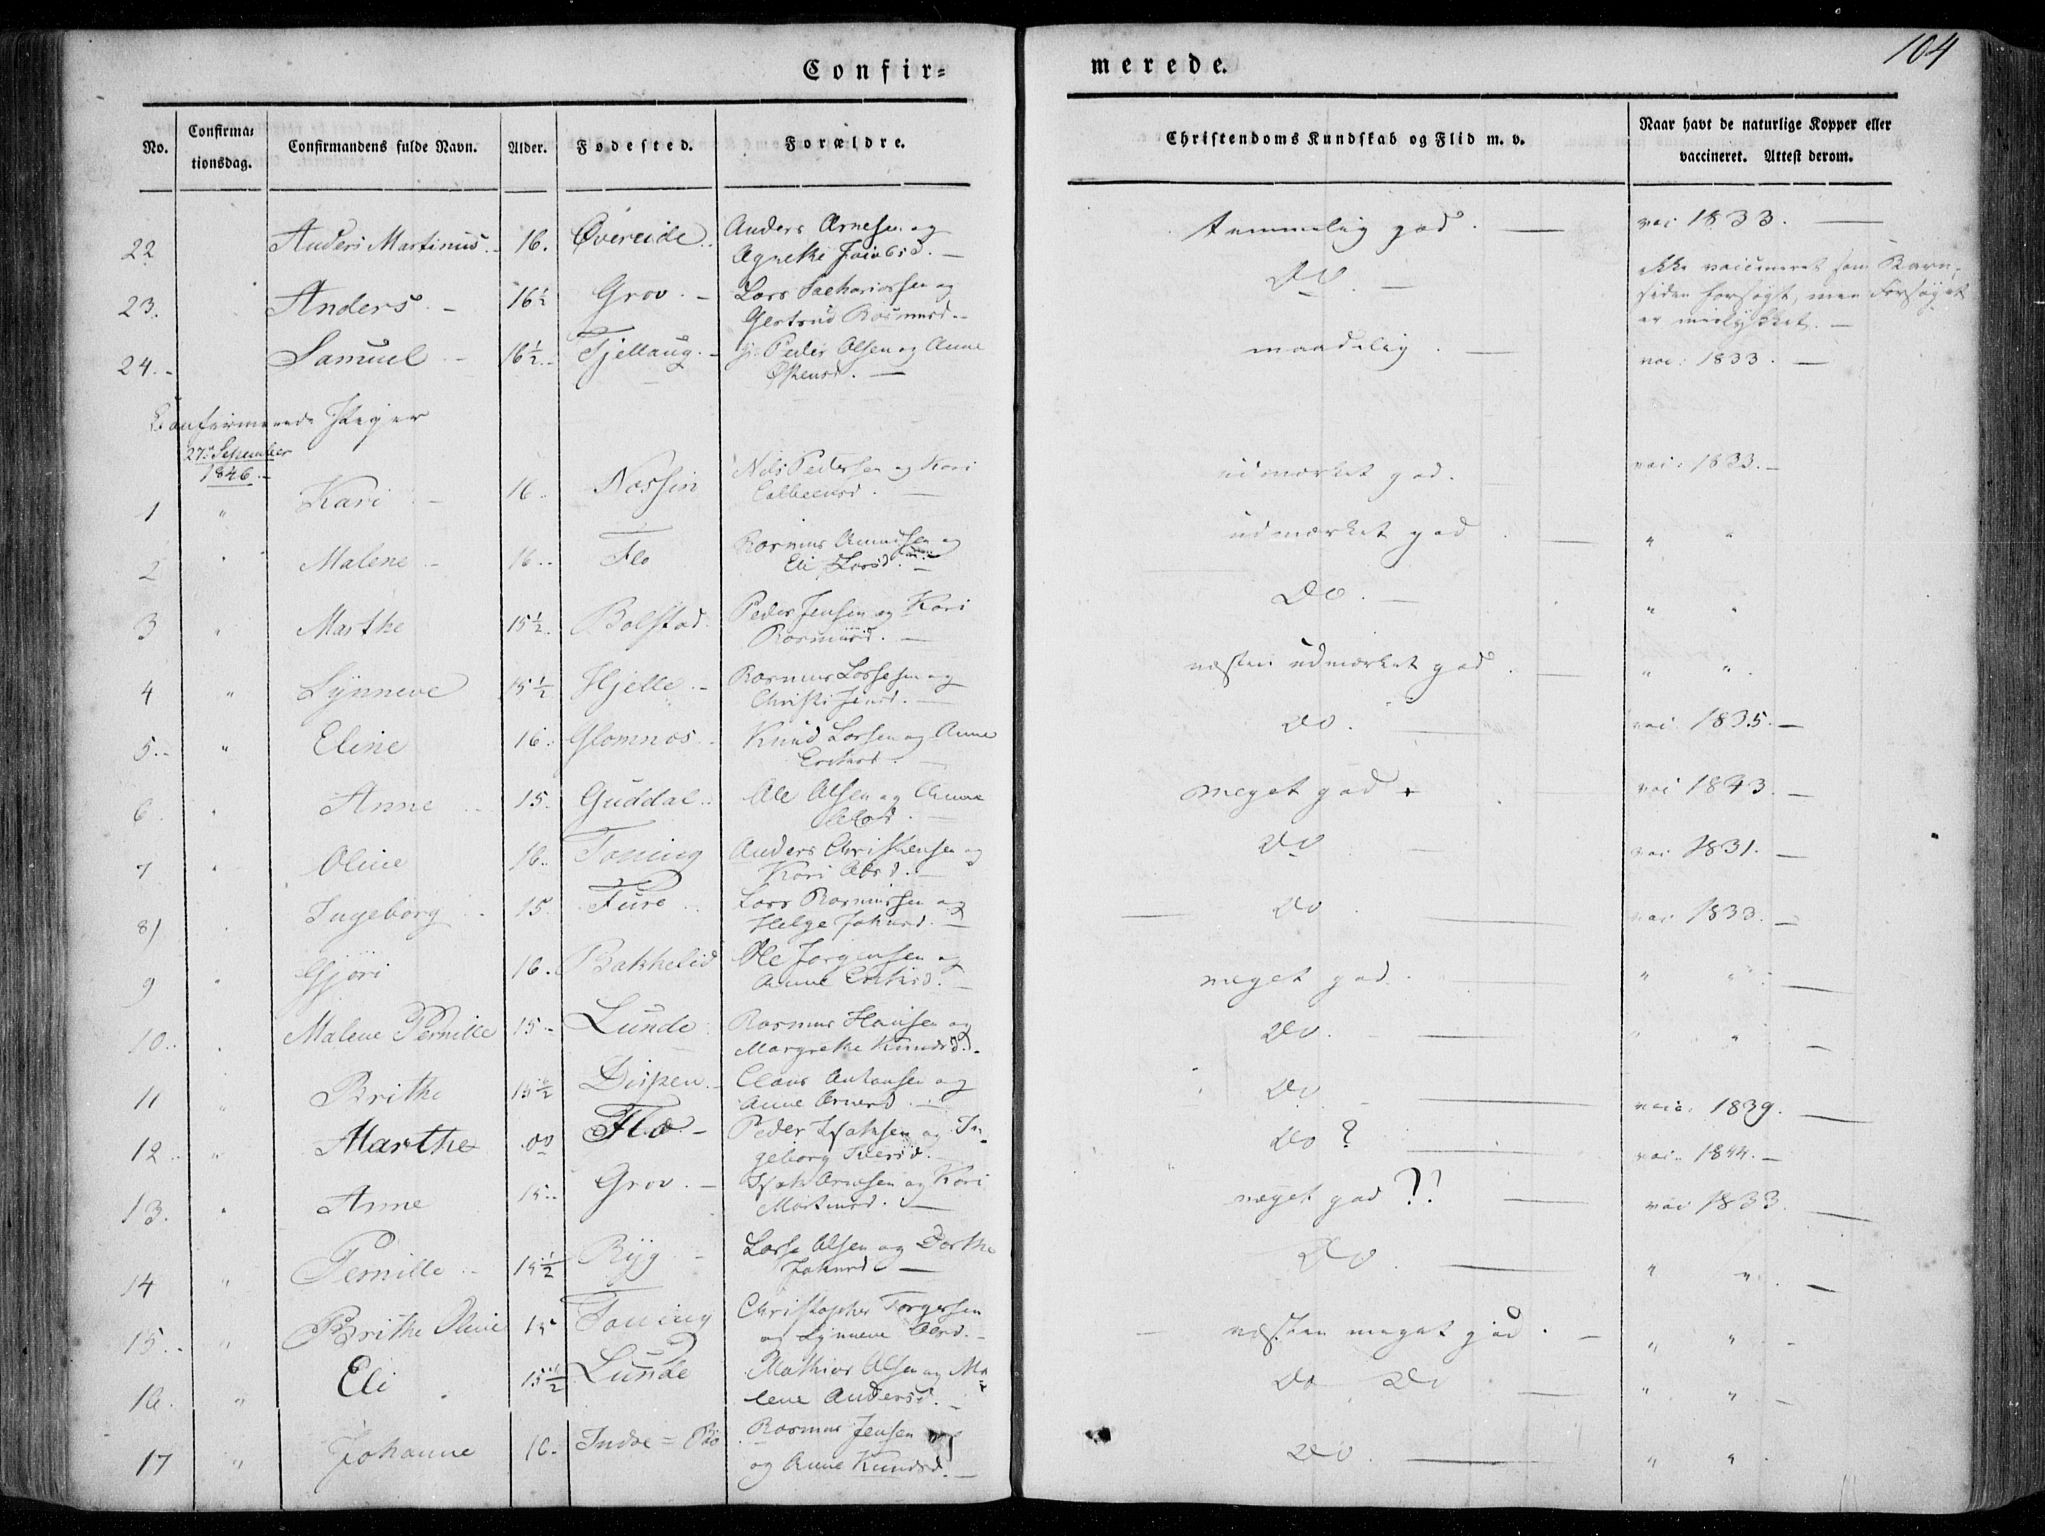 104
Confir= merede.
No. Confirma: tionsdag. Confirmandens fulde Navn. Alder. Fodested. Forældre. Christendoms Kundskab og Flid m. v. Naar havt de naturlige Kopper eller vaccineret. Attest derom.
22 Anders Martinus 16. Øvereide Anders Arnesen og temmelig god. vac 1833.
Agnethe
23. Anders 16½ Grov Lars Sachariasen og Do ikke vaccineret som Barn,
Gertrud Rasmusd. siden forsøgt, men Forsøget
er mislykket.
24. Samuel 16½ Tjellaug Peder Olsen og Anne maadelig vac: 1833.
Confirmerede Piger
27de September
1846.
1 " Kari 16 Nossin Nils Pedersen og Kari udmærket god. vac: 1833.
2 " Malene 16 Flo Rasmus og udmærket god " "
Eli Larsd.
3 " Marthe 15½ Bolstad Peder Jensen og Kari Do. " "
Rasmusd.
4 " Synneve 15½ Hjelle Rasmus Lassesen og næsten udmærket god " "
Christi Jensd.
5 " Eline 16 Glomnes Knud Larsen og Anne Do. vac 1835.
6 " Anne 15 Guddal Ole Olsen og Anne meget god vac 1843.
7 " Oline 16 Toning Anders Christensen og Do vac 1831.
Kari
8) " Ingeborg 15 Fure Lars Rasmussen og Do vac 1833.
Helge
9 " Gjøri 16. Bakkelid Ole Jørgensen og meget god " "
Anne
10 " Malene Pernille 15 Lunde Rasmus Hansen og Do. " "
Margrethe Knudsd.
11 " Brithe 15½ Dispen Claus Antonsen og Do vac: 1839.
Anne Arnesd.
12 " Marthe do Flo Peder Isaksen og In- Do ? vac. 1844.
geborg
13. " Anne 15 Grov Isak Arnesen og Kari meget god ?? vac 1833.
14 " Pernille 15½ Ryg Lasse Olsen og Dorthe Do " "
15 " Brithe Oline 15 Toning Christopher Torgersen næsten meget god. " "
og Synneve
16. " Eli 15½ Lunde Mathias Olsen og Ma Do Do " "
lene Andersd.
17 " Johanne 16. Indre = Bø Rasmus Jensen Do " "
og Anne Knudsd.